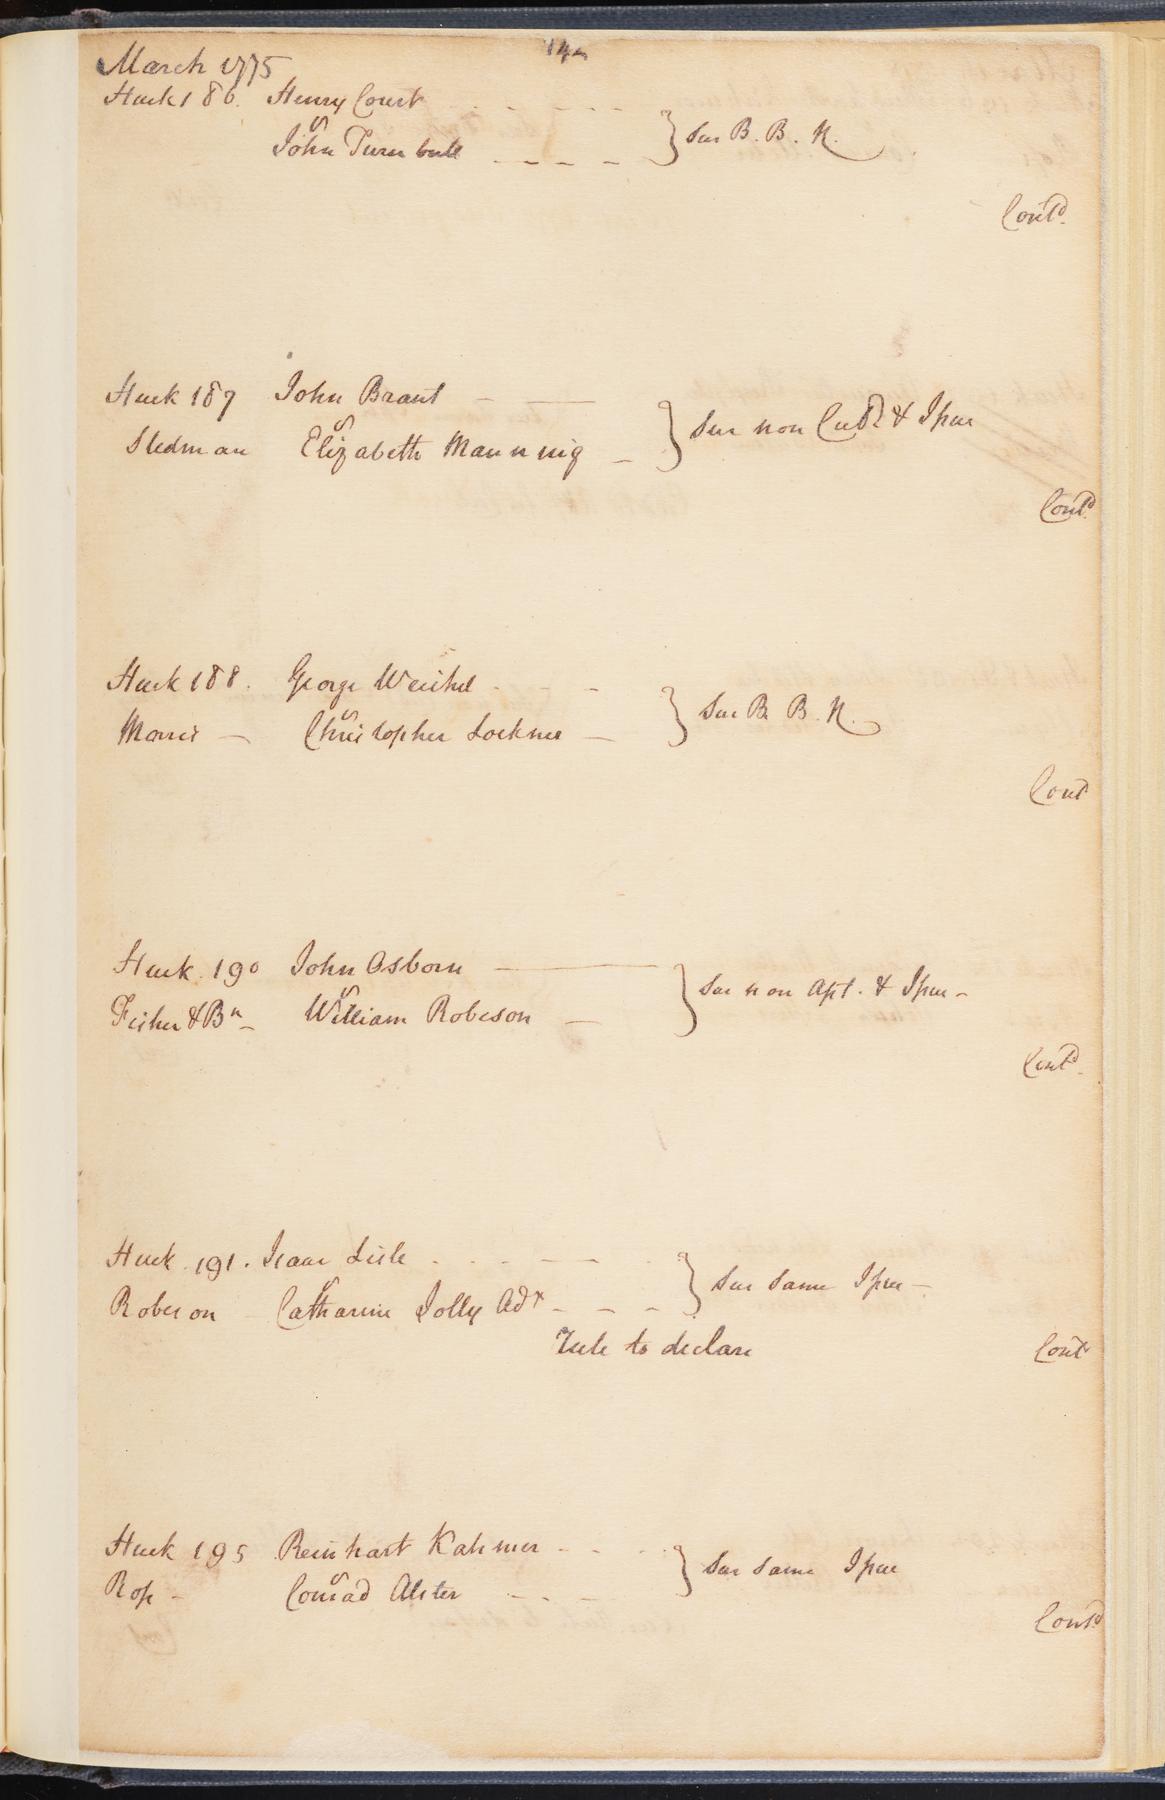 14
March 1775
Huck 186. Henry Court
vs
John Turnbull } Sur B. B. N.
Cont.d
Huck 187 John Brant
vs
Stedman Elizabeth Mannnig } Sur non & Ipue
Cont.d
Huck 188. George Weichel
vs
Morris Christopher Lockner } Sur B. B. N.
Cont
Huck. 190 John Osborn
vs
Fisher & Bn William Robeson } Sur non Apt. & Ipue
Cont.d
Huck. 191. Isaac Lisle
vs
Roberson Catharine Jolly Adx } Sur Same Ipue
Rule to declare
Cont
Huck 195 Reinhart Kahmer
vs
Ross Conrad Alster } Sur Same Ipue
Cont.d